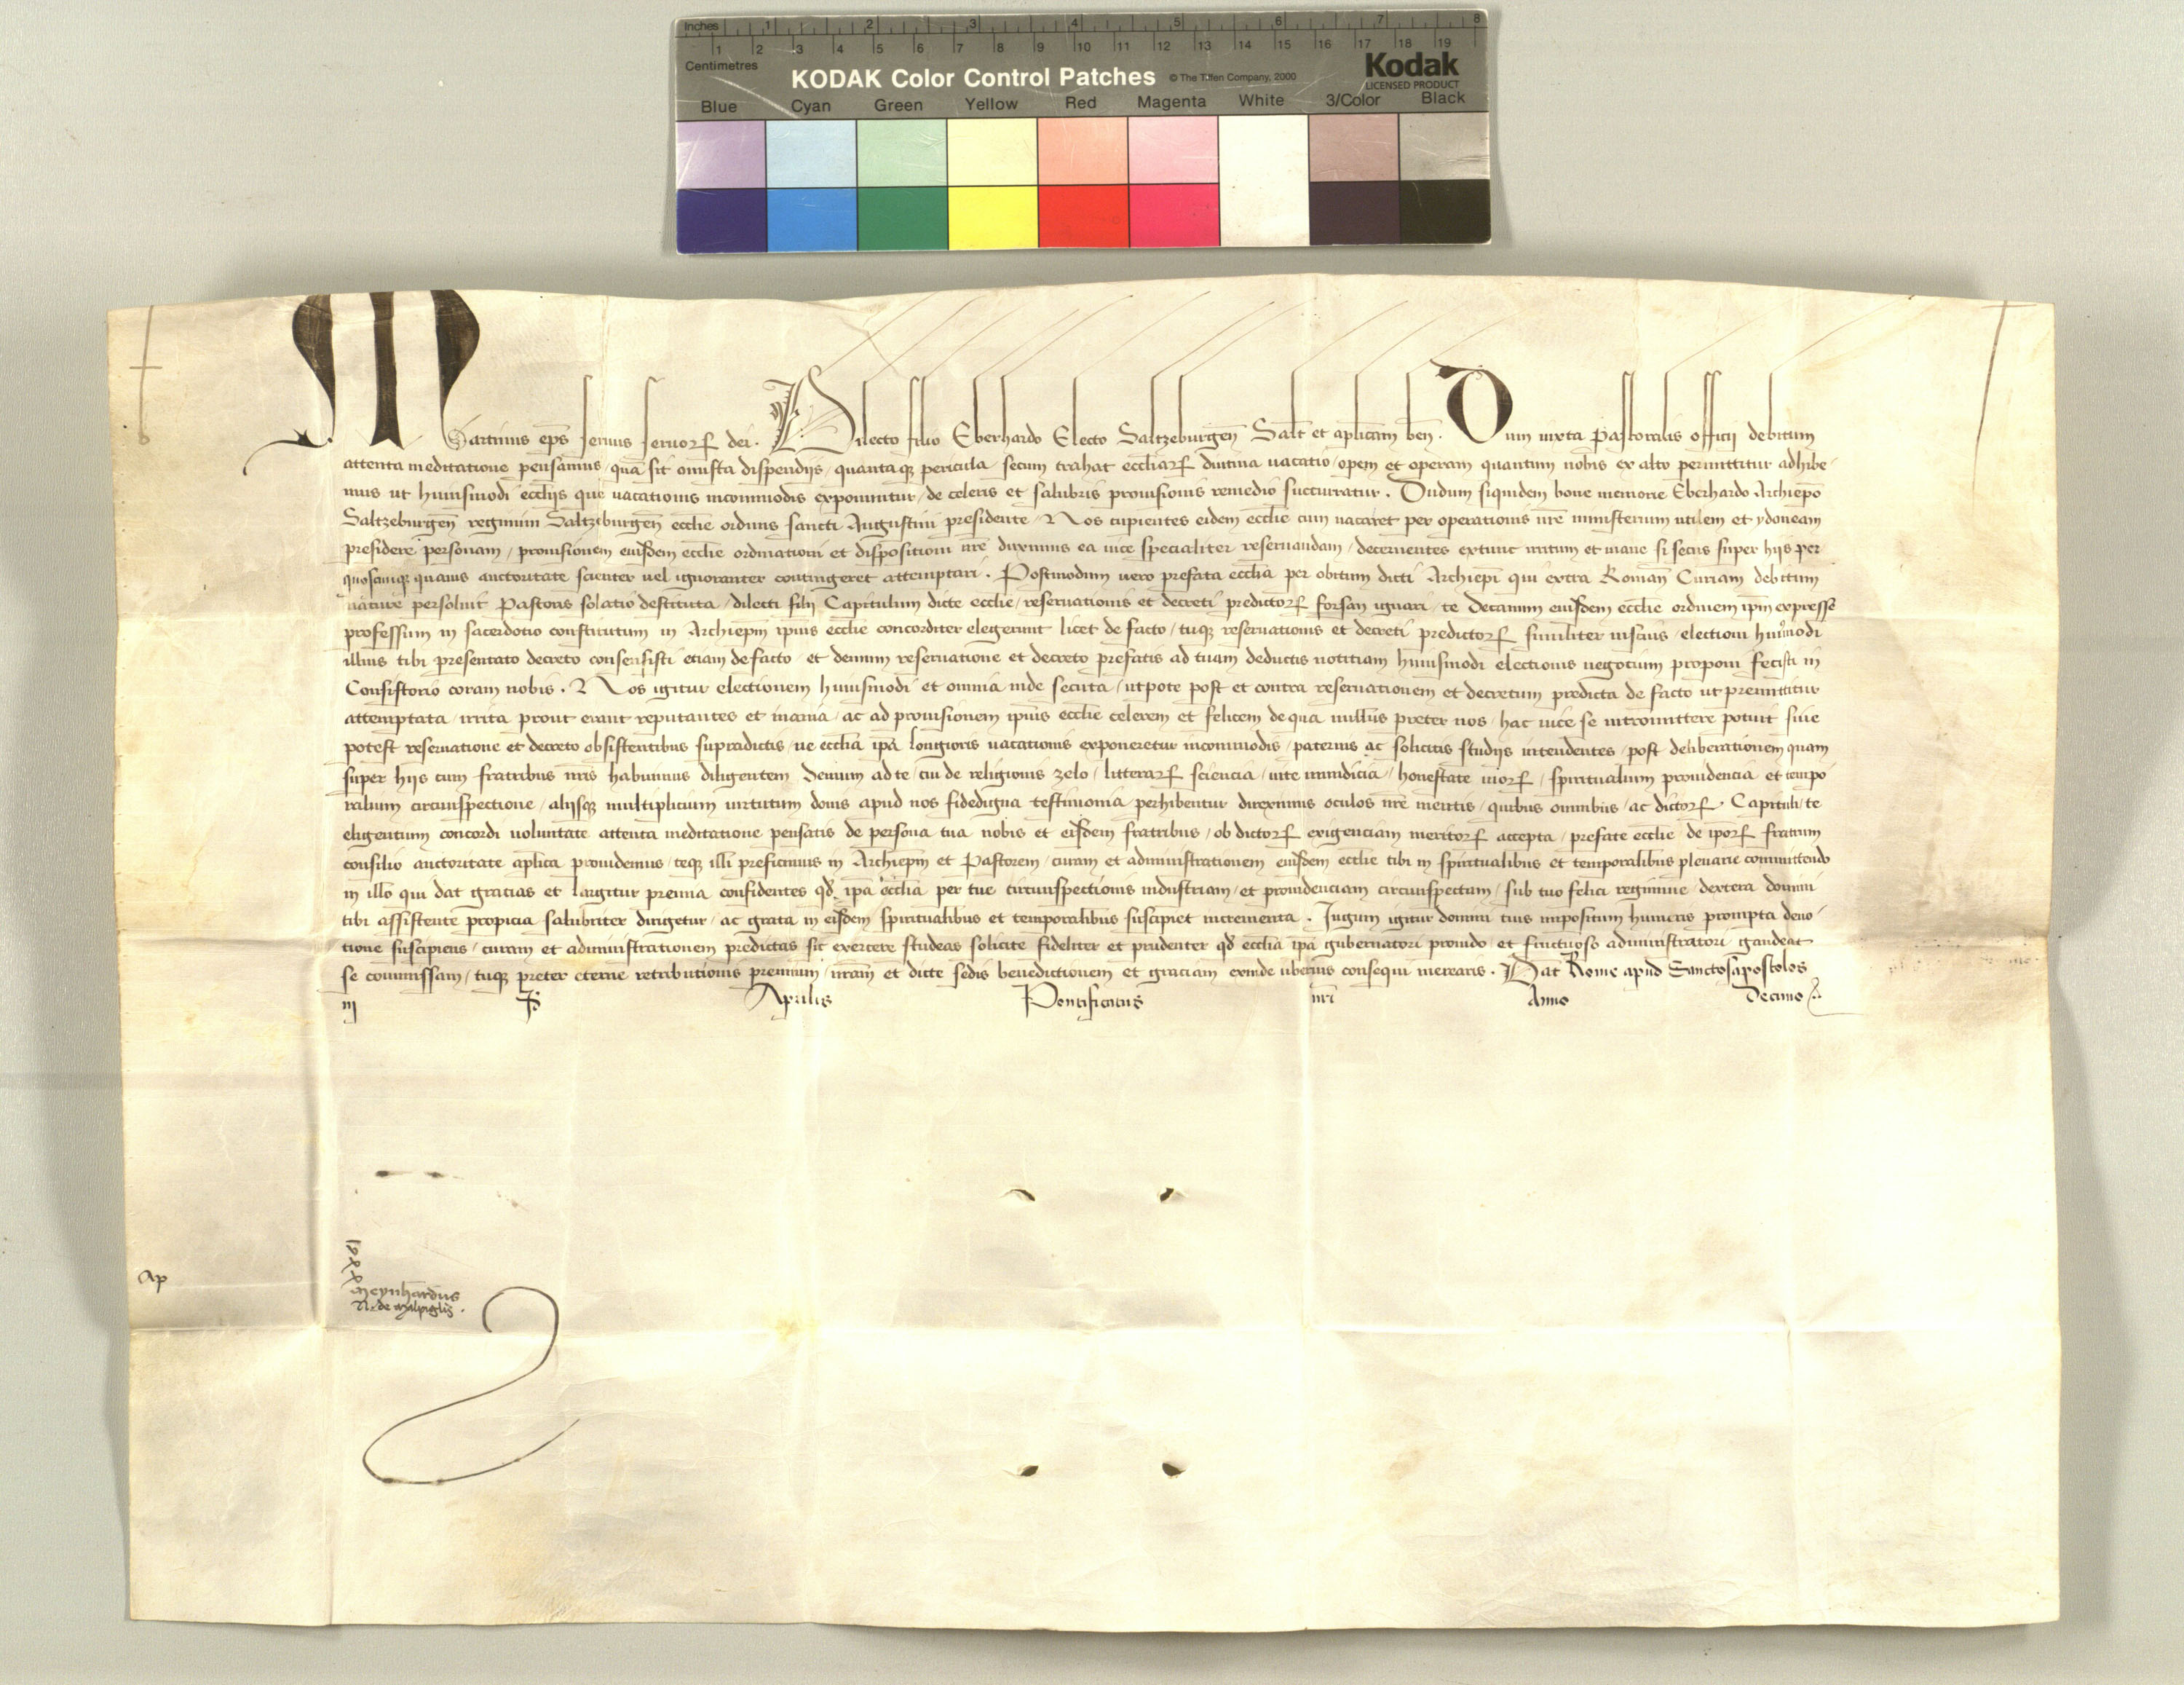 Inches 1 2 3 4 5 6 7 8
1 2 3 4 5 6 7 8 9 10 11 12 13 14 15 16 17 18 19
Centimetres
KODAK Color Control Patches © The Tiffen Company, 2000 Kodak
LICENSED PRODUCT
Blue Cyan Green Yellow Red Magenta White 3/Color Black
Martinus ep̄s seruus seruoꝝ dei. Dilecto filio Eberhardo Electo Saltzeburgeñ Salt̄ et ap̄licam̄ beñ. Dum iuxta pastoralis officij debitum
attenta meditatione pensamus / quā sit onusta dispendijs / quantaqꝫ pericula secum trahat ecc̄liaꝝ diutina uacatio / opem et operam quantum nobis ex alto permittitur adhibe
mus ut huiusmodi ecc̄lijs que uacationis incommodis exponuntur / de celeris et salubris prouisionis remedio succurratur. Dudum siquidem bone memorie Eberhardo Archiep̄o
Saltzeburgeñ regimini Saltzeburgeñ ecc̄lie ordinis sancti Augustini presidente / Nos cupientes eidem ecc̄lie cum uacaret per operationis nr̄e ministerium utilem et ydoneam
presidere personam / prouisionem eiusdem ecc̄lie ordinationi et dispositioni nr̄e duximus ea uice specialiter reseruandam / decernentes extunc irritum et inane si secus super hijs per
quoscunqꝫ quauis auctoritate scienter uel ignoranter contingeret attemptari. Postmodum uero prefata ecc̄lia per obitum dicti Archiep̄i qui extra Romañ Curiam debitum
nature persoluit Pastoris solatio destituta / dilecti filij Capitulum dicte ecc̄lie / reseruationis et decreti predictoꝝ forsan ignari / te Decanum eiusdem ecc̄lie ordinem ip̄m expresse
professum in sacerdotio constitutum in Archiep̄m ip̄ius ecc̄lie concorditer elegerunt licet de facto / tuqꝫ reseruationis et decreti predictoꝝ similiter inscius / electioni hm̄odi
illius tibi presentato decreto consensisti etiam de facto / et demum reseruatione et decreto prefatis ad tuam deductis notitiam huiusmodi electionis negotium proponi fecisti in
Consistorio coram nobis. Nos igitur electionem huiusmodi et omnia inde secuta / utpote post et contra reseruationem et decretum predicta de facto ut premittitur
attemptata / irrita prout erant reputantes et inania / ac ad prouisionem ip̄ius ecc̄lie celerem et felicem de qua nullus preter nos / hac uice se intromittere potuit siue
potest reseruatione et decreto obsistentibus supradictis / ne ecc̄lia ip̄a longioris uacationis exponeretur incommodis / paternis ac solicitis studijs intendentes / post deliberationem quam
super hijs cum fratribus nr̄is habuimus diligentem Demum ad te / cui de religionis zelo / litteraꝝ sciencia / uite mundicia / honestate moꝝ / spiritualium prouidencia et tempo
ralium circumspectione / alijsqꝫ multiplicium uirtutum donis apud nos fidedigna testimonia perhibentur direximus oculos nr̄e mentis / quibus omnibus / ac dictoꝝ Capituli / te
eligentium concordi uoluntate attenta meditatione pensatis de persona tua nobis et eisdem fratribus / ob dictoꝝ exigenciam meritoꝝ accepta / prefate ecc̄lie / de ip̄oꝝ fratrum
consilio auctoritate ap̄lica prouidemus / teqꝫ illi preficimus in Archiep̄m et Pastorem / curam et administrationem eiusdem ecc̄lie tibi in spiritualibus et temporalibus plenarie committendo
in illo qui dat gracias et largitur premia confidentes qd̄ ip̄a ecc̄lia per tue circumspectionis industriam / et prouidenciam circumspectam / sub tuo felici regimine / dextera domini
tibi assistente propicia salubriter dirigetur / ac grata in eisdem spiritualibus et temporalibus suscipiet incrementa. Iugum igitur domini tuis impositum humeris prompta deuo
tione suscipiens / curam et administrationem predictas sic exercere studeas solicite fideliter et prudenter qd̄ ecc̄lia ip̄a gubernatori prouido / et fructuoso administratori gaudeat
se commissam / tuqꝫ preter eterne retributionis premium / nr̄am et dicte sedis benedictionem et graciam exinde uberius consequi merearis. Dat̄ Rome apud Sanctosapostolos
iij Id̄ Aprilis Pontificatus nr̄i Anno Decimo
Ap
Meynhardus
N. de Malpiglis.